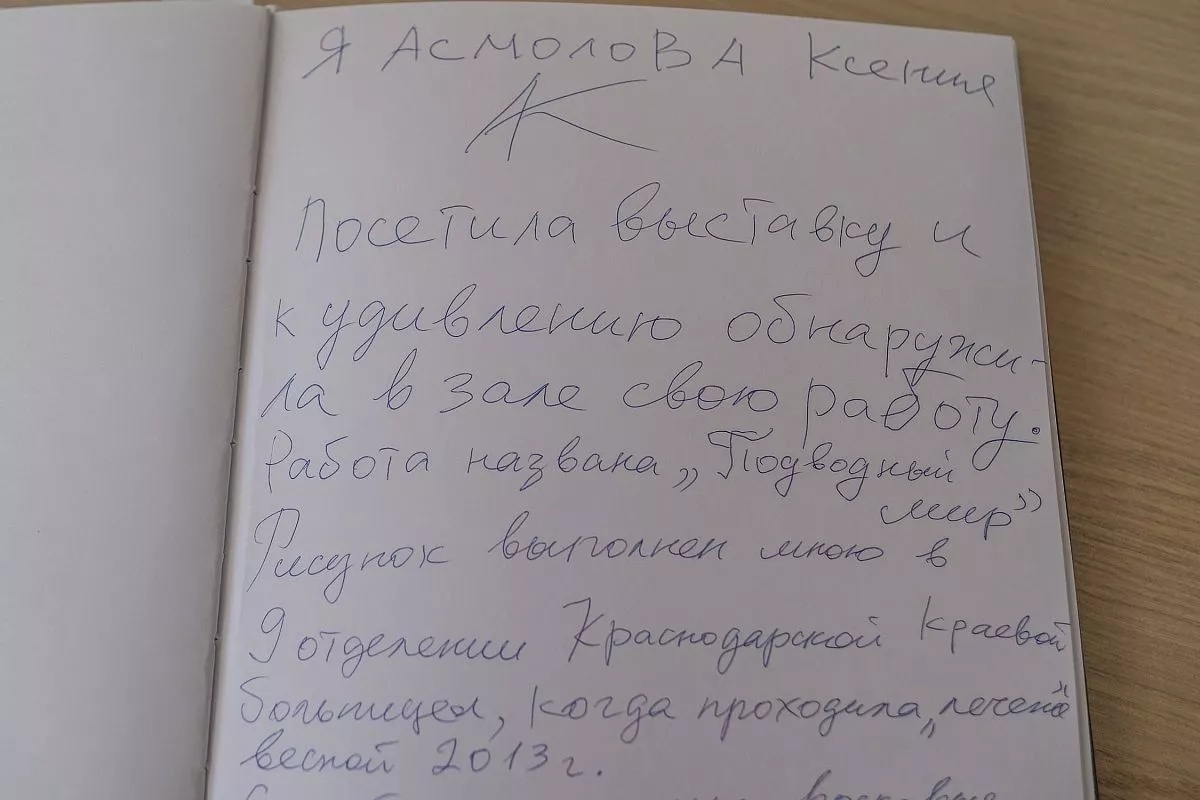 Я АСМОЛОВА Ксения
АК
Посетила выставку и
к удивлению обнаружи-
ла в зале свою работу.
Работа названа „Подводный
мир”
Рисунок выполнен мною в
9 отделении Краснодарской Краевой
больницы, когда проходила „лечение”
весной 2013 г.